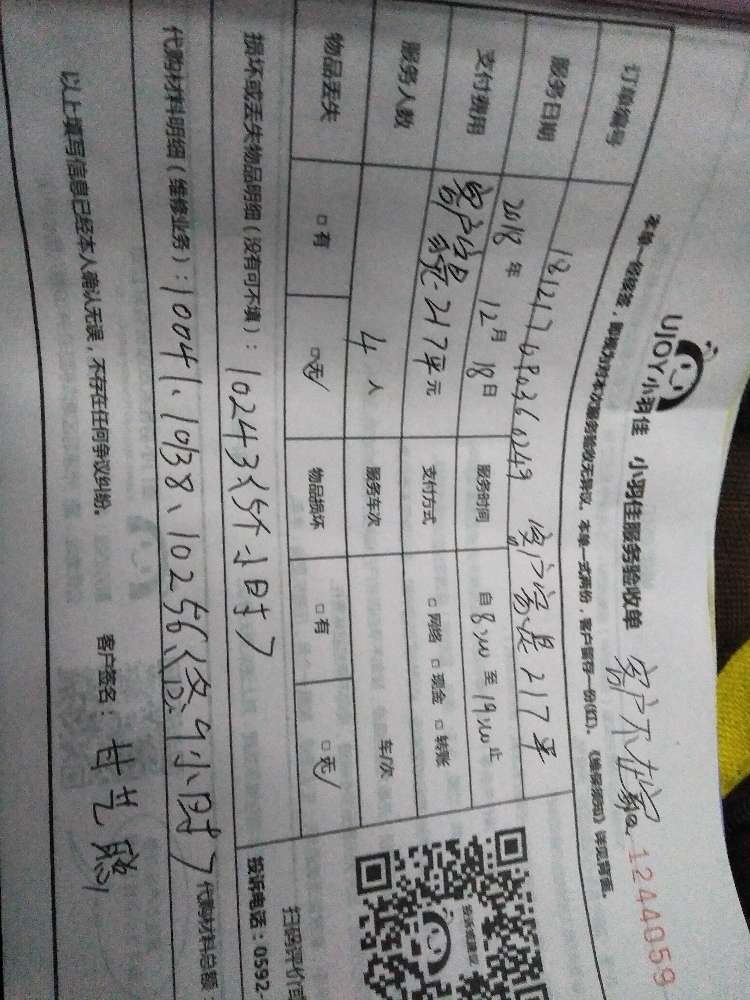 UJOY小羽佳 小羽佳服务验收单 客户不在家 1244059
本单一经签签，即视为对本次服务验收无异议。本单一式两份，客户留存一份(红)。《维保须知》详见背面。
订单编号 181217080360249 客户家是217平
服务日期 2018年12月18日 服务时间 自8:00至19:00止
支付费用 客户家是217平元 支付方式 □网络 □现金 □转账
服务人数 4人 服务车次 车/次
物品丢失 □有 □无√ 物品损坏 □有 □无√
损坏或丢失物品明细（没有可不填）：10243（5个小时）
代购材料明细（维修业务）：10041、10138、10256（各9小时） 代购材料总额：
以上填写信息已经本人确认无误，不存在任何争议纠纷。 客户签名：甘艺聪
扫码评价
投诉电话：0592-